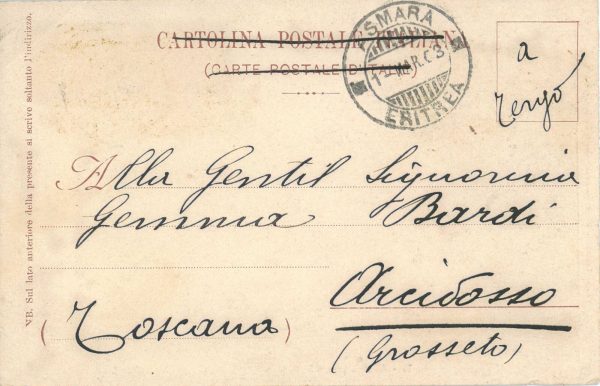 CARTOLINA POSTALE ITALIANA
(CARTE POSTALE D'ITALIE)
ASMARA
ERITREA
a
tergo
Alla Gentil Signorina
Gemma Bardi
Arcidosso
(Toscana)
(Grosseto)
NB. Sul lato anteriore della presente si scrive soltanto l'indirizzo.